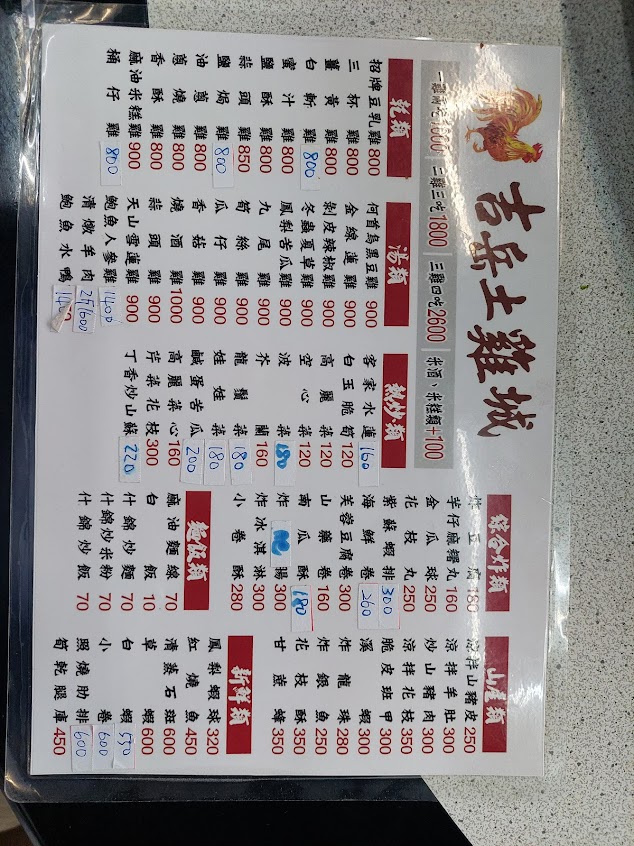 吉岳土雞城
一雞兩吃1600 三雞三吃1800 三雞四吃2600 米酒、米糕類+100
乾類
招牌豆乳雞 800
三杯雞 800
薑黃雞 800
白斬雞 800
蜜汁雞 800
鹽酥雞 800
蒜頭雞 850
鹽焗雞 800
油蔥雞 800
蔥燒雞 800
香酥雞 800
麻油米糕雞 900
桶仔雞 800
湯類
何首烏黑豆雞 900
金線蓮雞 900
剝皮辣椒雞 900
冬蟲夏草雞 900
鳳梨苦瓜雞 900
九尾雞 900
筍絲雞 900
瓜仔雞 900
香菇雞 900
燒酒雞 1000
蒜頭雞 900
天山雪蓮雞 900
鮑魚人參雞 1400
清燉羊肉 2斤1600
鮑魚水鴨
熱炒類
客家水蓮 160
白玉脆筍 120
高麗菜 120
空心菜 120
菠菜 180
芥蘭 160
龍鬚菜 180
娃娃菜 180
鹹蛋苦瓜 200
高麗菜心 160
芹菜花枝 300
丁香炒山蘇 220
綜合炸類
炸豆腐 160
芋仔麻糬丸 180
金瓜球 250
花枝丸 250
紫蘇蝦排 300
海鮮卷 260
芙蓉豆腐卷 300
山藥卷 160
南瓜酥 180
炸肥腸 300
炸冰淇淋 300
小卷酥 280
麵飯類
麻油麵線 70
白飯 10
什錦炒麵 70
什錦炒米粉 70
什錦炒飯 70
山產類
涼拌山豬皮 250
涼拌羊肚 300
炒山豬肉 300
涼拌花枝 350
脆皮班甲 300
溪蝦 300
炸龍珠 280
炸銀魚 250
花枝酥 350
甘蔗蜂 350
新鮮類
鳳梨蝦球 320
紅燒魚 450
清蒸石斑 600
草蝦 600
白蝦 550
小卷 600
照燒肋排 600
筍乾腿庫 450